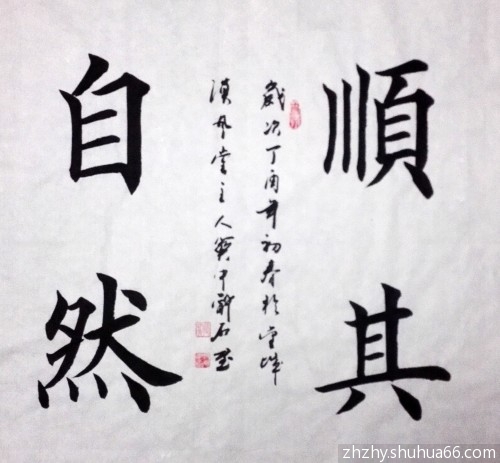 順其
歲次丁酉年初春於
風堂主人
自然
zhzhy.shuhua66.com